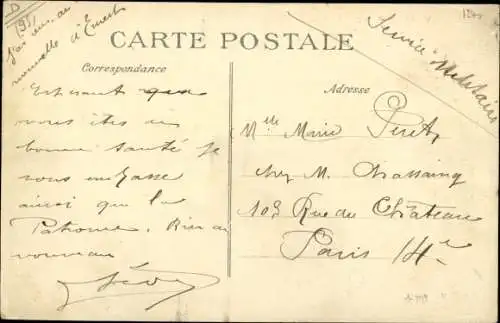 D
J'ai eu au
nouvelle d'Ernest
Service Militaire
CARTE POSTALE
Correspondance
Adresse
Espérant que
vous êtes en
bonne santé je
vous embrasse
ainsi que la
Patronne. Rien de
nouveau
Mlle Marie
chez M. Chassaing
103 Rue du Château
Paris 14e